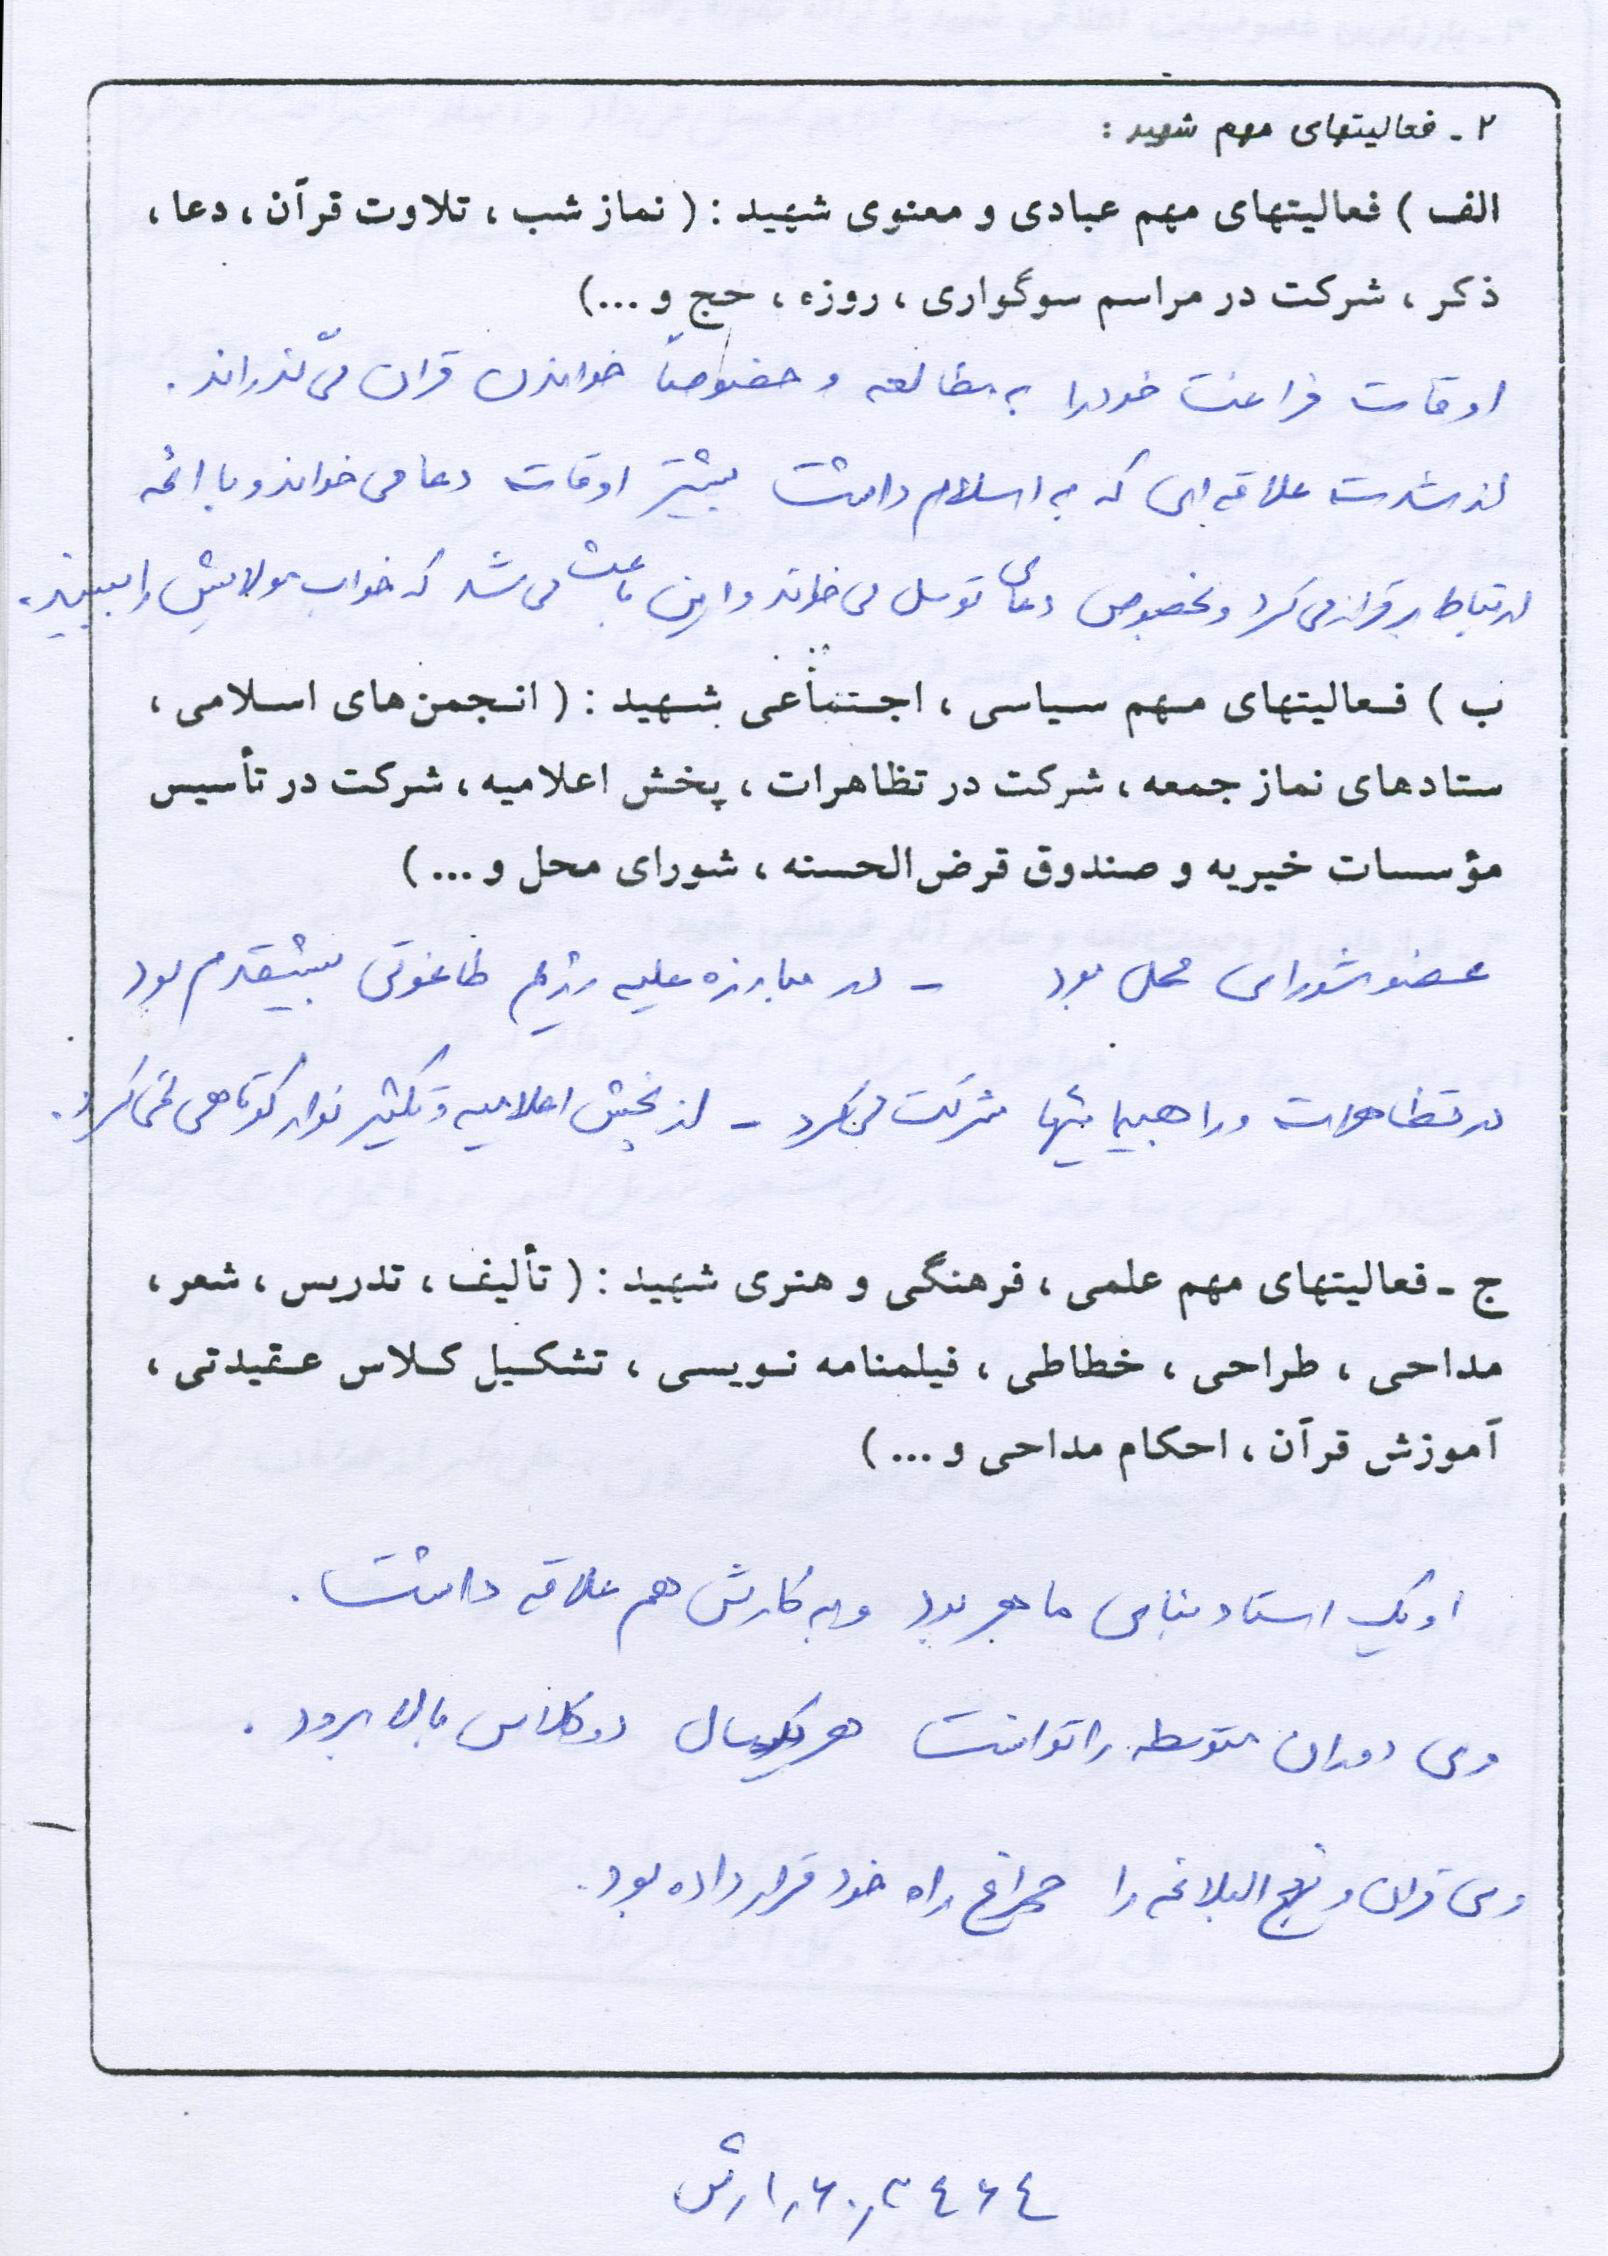 ۲ ـ فعالیتهای مهم شهید :
الف ) فعالیتهای مهم عبادی و معنوی شهید : ( نماز شب ، تلاوت قرآن ، دعا ،
ذکر ، شرکت در مراسم سوگواری ، روزه ، حج و ...)
اوقات فراغت خود را به مطالعه و خصوصاً خواندن قران می گذراند .
از شدت علاقه ای که به اسلام داشت بیشتر اوقات دعا می خواند و با ائمه
ارتباط برقرار می کرد و بخصوص دعای توسل می خواند و این باعث می شد که خواب مولایش را ببیند .
ب ) فعالیتهای مهم سیاسی ، اجتماعی شهید : ( انجمن‌های اسلامی ،
ستادهای نماز جمعه ، شرکت در تظاهرات ، پخش اعلامیه ، شرکت در تأسیس
مؤسسات خیریه و صندوق قرض‌الحسنه ، شورای محل و ... )
عضو شورای محل بود - در مبارزه علیه رژیم طاغوتی پیشقدم بود
در تظاهرات و راهپیمائیها شرکت می کرد - از پخش اعلامیه و تکثیر نوار کوتاهی نمی کرد .
ج ـ فعالیتهای مهم علمی ، فرهنگی و هنری شهید : ( تألیف ، تدریس ، شعر ،
مداحی ، طراحی ، خطاطی ، فیلمنامه نویسی ، تشکیل کلاس عقیدتی ،
آموزش قرآن ، احکام مداحی و ... )
او یک استاد بنای ماهر بود و به کارش هم علاقه داشت .
وی دوران متوسطه را توانست هر یکسال دو کلاس بالا برود .
وی قران و نهج البلاغه را چراغ راه خود قرار داده بود .